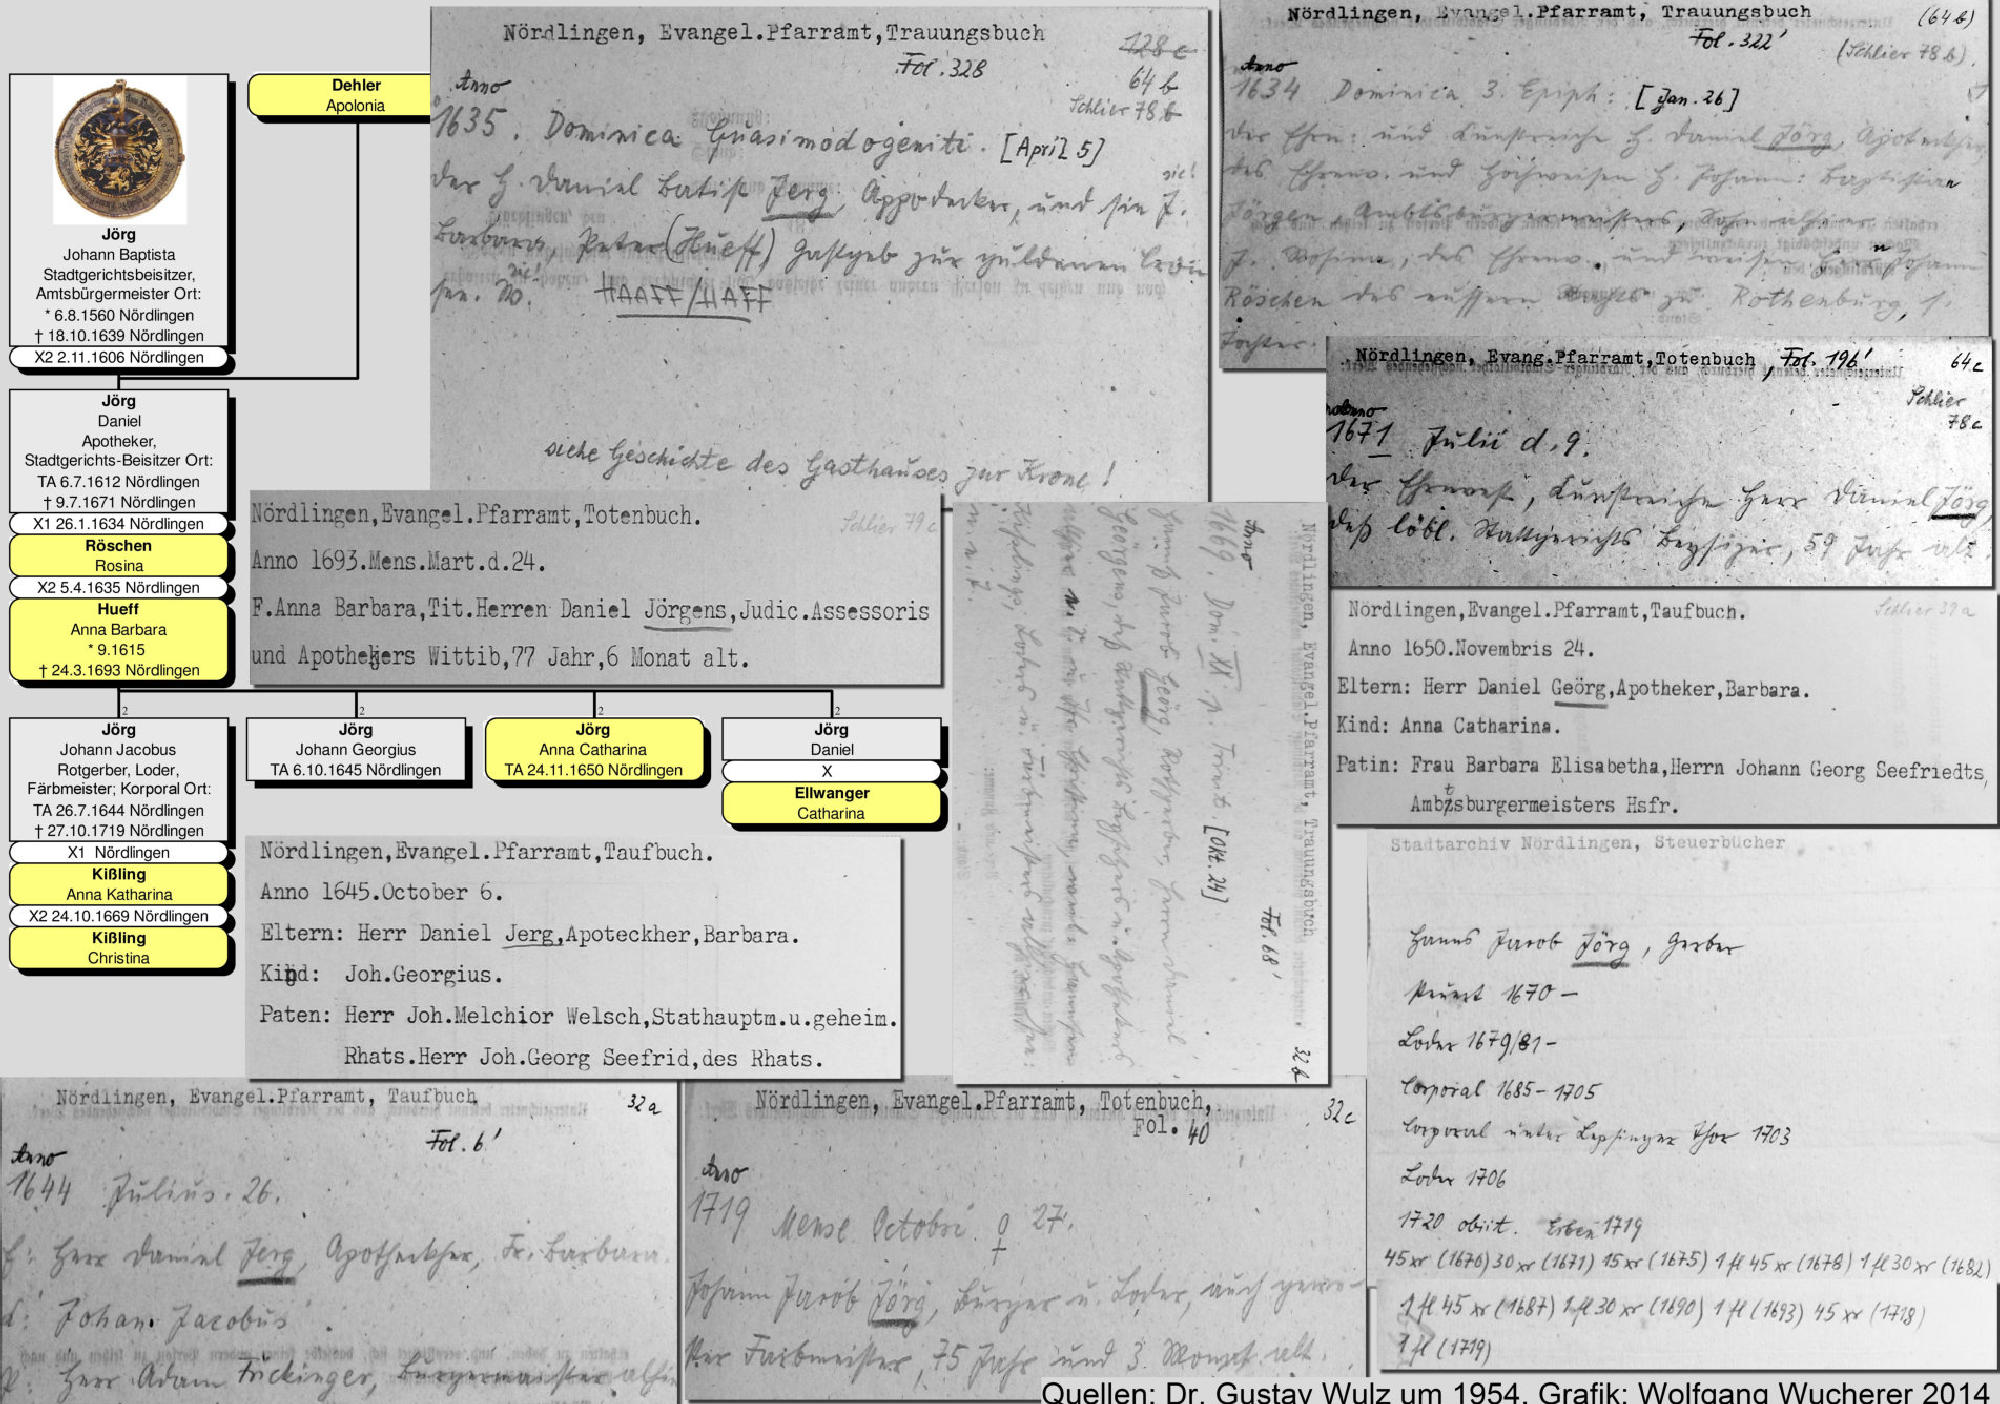 Dehler
Apolonia
Jörg
Johann Baptista
Stadtgerichtsbeisitzer,
Amtsbürgermeister Ort:
* 6.8.1560 Nördlingen
† 18.10.1639 Nördlingen
X2 2.11.1606 Nördlingen
Jörg
Daniel
Apotheker,
Stadtgerichts-Beisitzer Ort:
TA 6.7.1612 Nördlingen
† 9.7.1671 Nördlingen
X1 26.1.1634 Nördlingen
Röschen
Rosina
X2 5.4.1635 Nördlingen
Hueff
Anna Barbara
* 9.1615
† 24.3.1693 Nördlingen
2
Jörg
Johann Jacobus
Rotgerber, Loder,
Färbmeister; Korporal Ort:
TA 26.7.1644 Nördlingen
† 27.10.1719 Nördlingen
X1 Nördlingen
Kißling
Anna Katharina
X2 24.10.1669 Nördlingen
Kißling
Christina
2
Jörg
Johann Georgius
TA 6.10.1645 Nördlingen
2
Jörg
Anna Catharina
TA 24.11.1650 Nördlingen
2
Jörg
Daniel
X
Ellwanger
Catharina
Nördlingen, Evangel.Pfarramt,Trauungsbuch
Fol. 328
128c
64 b
Schlier 78 b
Anno
1635. Dominica Quasimodogeniti. [April 5]
der H. Daniel Batist Jerg, Appodecker, und sie J.
sic!
Barbara, Peter (Hueff) Gastgeb zur guldenen Cron
sic!
HAAFF/HAFF
siehe Geschichte des Gasthauses zur Krone!
Nördlingen, Evangel.Pfarramt, Trauungsbuch
(64 b)
Fol. 322'
(Schlier 78 b)
Anno
1634 Dominica 3. Epiph: [Jan. 26]
der Ehrn: und Kunstreiche H. Daniel Jörg, Apotecker,
des Ehrenv. und Hochweisen H. Johann: Baptistae
Jörgen, Ambtsbürgermeisters, Sohn alhier
J. Rosina, des Ehrenv. und weisen Herrn Johann
Röschen des eussern zu Rothenburg, s.
Tochter.
Nördlingen, Evang.Pfarramt,Totenbuch, Fol. 196'
64c
Schlier
78c
Anno
1671 Julii d. 9.
der Ehrnvest, Kunstreiche Herr Daniel Jörg,
deß löbl. Stattgerichts Beysizer, 59 Jahr alt.
Nördlingen,Evangel.Pfarramt,Totenbuch.
Schlier 79c
Anno 1693.Mens.Mart.d.24.
F.Anna Barbara,Tit.Herren Daniel Jörgens,Judic.Assessoris
und Apothekers Wittib,77 Jahr,6 Monat alt.
Nördlingen, Evangel.Pfarramt, Trauungsbuch
Fol. 68'
32b
Anno
1669. Dom. XX p. Trinit. [Okt. 24]
Hannß Jacob Georg, Rothgerber, Herrn Daniel
Nördlingen,Evangel.Pfarramt,Taufbuch.
Schlier 39a
Anno 1650.Novembris 24.
Eltern: Herr Daniel Geörg,Apotheker,Barbara.
Kind: Anna Catharina.
Patin: Frau Barbara Elisabetha,Herrn Johann Georg Seefriedts,
Ambtsburgermeisters Hsfr.
Nördlingen,Evangel.Pfarramt,Taufbuch.
Anno 1645.October 6.
Eltern: Herr Daniel Jerg,Apoteckher,Barbara.
Kind: Joh.Georgius.
Paten: Herr Joh.Melchior Welsch,Stathauptm.u.geheim.
Rhats.Herr Joh.Georg Seefrid,des Rhats.
Stadtarchiv Nördlingen, Steuerbücher
Hanns Jacob Jörg, Gerber
steuert 1670 -
Loder 1679/81 -
Corporal 1685-1705
Corporal unter Lepsinger Thor 1703
Loder 1706
1720 obiit. Erben 1719
45 xr (1670) 30 xr (1671) 15 xr (1675) 1 fl 45 xr (1678) 1 fl 30 xr (1682)
1 fl 45 xr (1687) 1 fl 30 xr (1690) 1 fl (1693) 45 xr (1718)
1 fl (1719)
Nördlingen, Evangel.Pfarramt, Taufbuch
32a
Fol. 6'
Anno
1644 Julius. 26.
E: Herr Daniel Jerg, Apotheckher, Fr. Barbara.
K: Johan. Jacobus
P: Herr Adam Frickinger, Burgermaister alhie
Nördlingen, Evangel.Pfarramt, Totenbuch,
Fol. 40
32c
Anno
1719 Mense Octobri 27.
Johann Jacob Jörg, Burger u. Loder, auch gewe-
ster Farbmeister, 75 Jahr und 3. Monat alt.
Quellen: Dr. Gustav Wulz um 1954, Grafik: Wolfgang Wucherer 2014